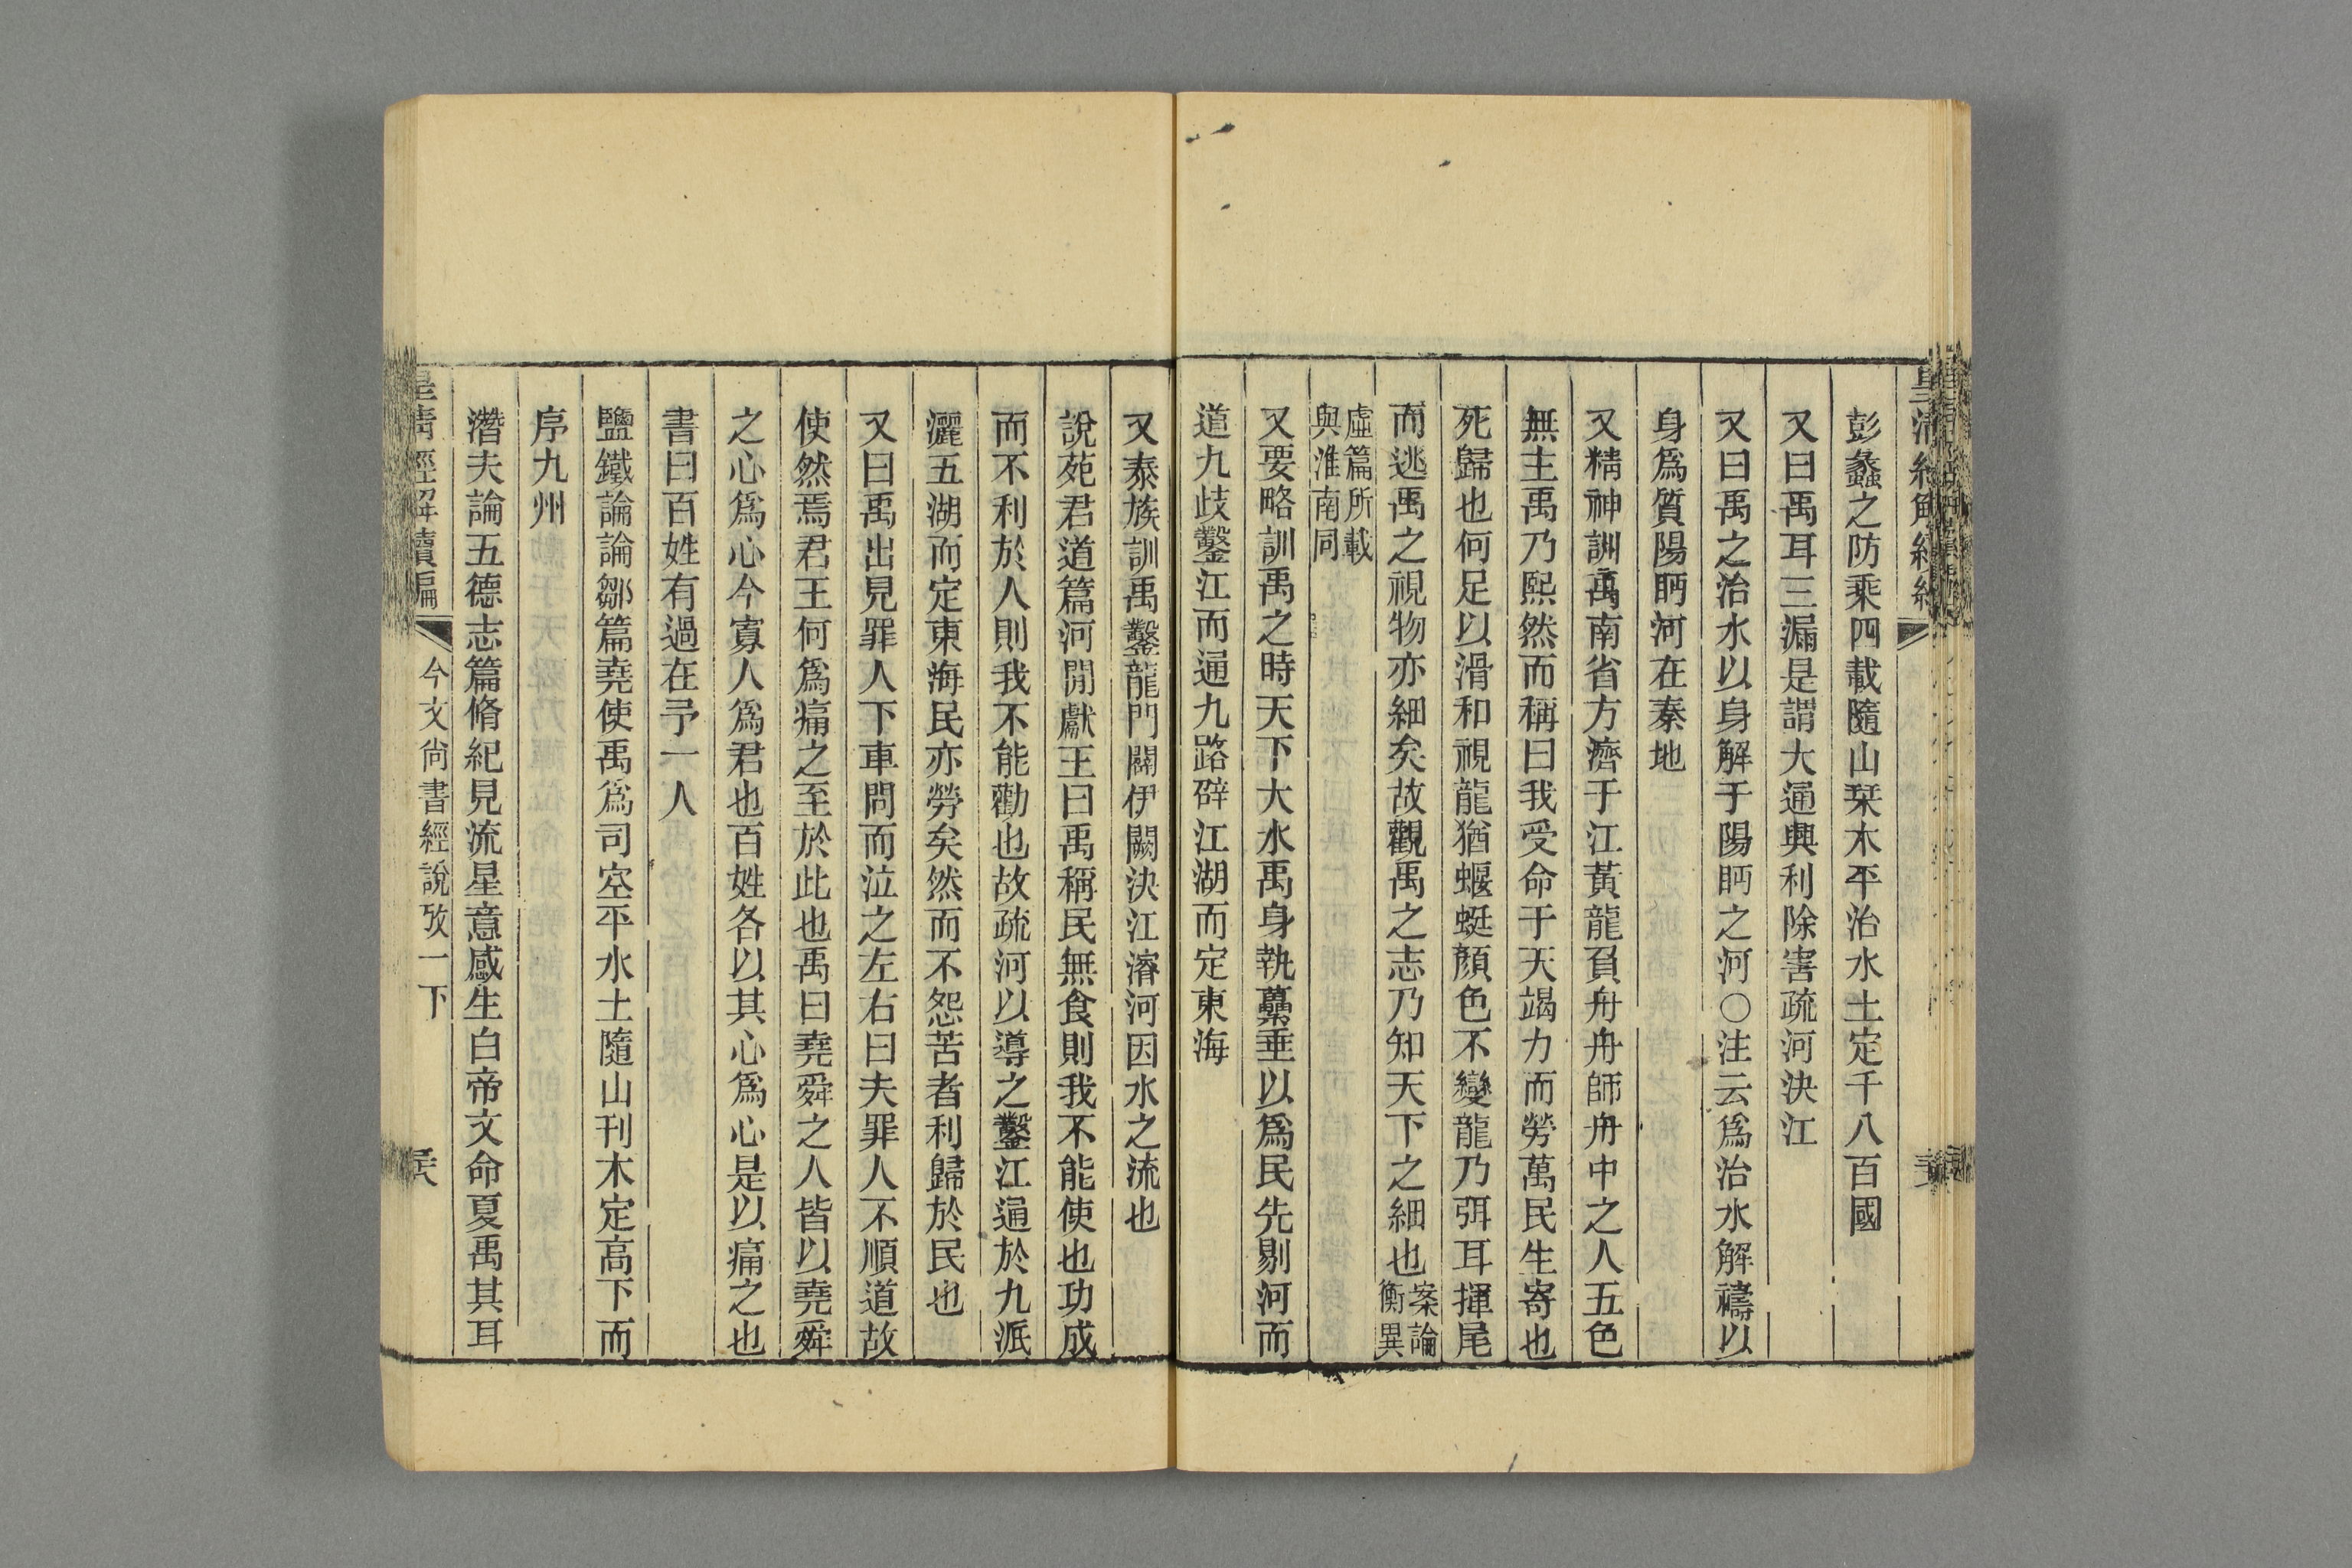 彭蠡之防乘四載隨山栞木平治水土定千八百國
又曰禹耳三漏是謂大通興利除害疏河決江
又曰禹之治水以身解于陽盱之河○注云爲治水解禱以
身爲質陽盱河在秦地
又精神訓禹南省方濟于江黃龍負舟舟師舟中之人五色
無主禹乃熙然而稱曰我受命于天竭力而勞萬民生寄也
死歸也何足以滑和視龍猶蝘蜓顏色不變龍乃弭耳揮尾
而逃禹之視物亦細矣故觀禹之志乃知天下之細也案論
衡異
虛篇所載
與淮南同
又要略訓禹之時天下大水禹身執虆垂以爲民先剔河而
道九歧鑿江而通九路辟江湖而定東海
又泰族訓禹鑿龍門闢伊闕決江濬河因水之流也
說苑君道篇河閒獻王曰禹稱民無食則我不能使也功成
而不利於人則我不能勸也故疏河以導之鑿江通於九派
灑五湖而定東海民亦勞矣然而不怨苦者利歸於民也
又曰禹出見罪人下車問而泣之左右曰夫罪人不順道故
使然焉君王何爲痛之至於此也禹曰堯舜之人皆以堯舜
之心爲心今寡人爲君也百姓各以其心爲心是以痛之也
書曰百姓有過在予一人
鹽鐵論論鄒篇堯使禹爲司空平水土隨山刊木定高下而
序九州
潛夫論五德志篇脩紀見流星意感生白帝文命夏禹其耳
皇淸經解續編
今文尙書經說攷一下